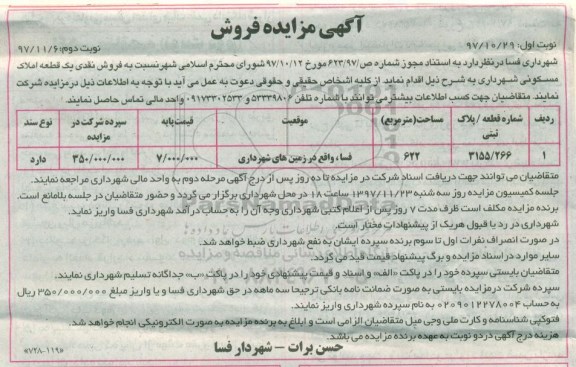 آگهی مزایده فروش
نوبت اول: ۹۷/۱۰/۲۹
نوبت دوم: ۹۷/۱۱/۶
شهرداری فسا در نظر دارد به استناد مجوز شماره ص/۶۲۳/۹۷ مورخ ۹۷/۱۰/۱۲ شورای محترم اسلامی شهر نسبت به فروش نقدی یک قطعه املاک
مسکونی شهرداری به شرح ذیل اقدام نماید از کلیه اشخاص حقیقی و حقوقی دعوت به عمل می آید با توجه به اطلاعات ذیل در مزایده شرکت
نمایند متقاضیان جهت کسب اطلاعات بیشتر می توانند با شماره تلفن ۵۳۳۳۹۸۰۶ و ۰۹۱۷۳۳۰۲۵۳۳ واحد مالی تماس حاصل نمایند.
ردیف | شماره قطعه / پلاک ثبتی | مساحت(مترمربع) | موقعیت | قیمت پایه | سپرده شرکت در مزایده | نوع سند
۱ | ۳۱۵۵/۲۶۶ | ۶۲۲ | فسا، واقع در زمین های شهرداری | ۷/۰۰۰/۰۰۰ | ۳۵۰/۰۰۰/۰۰۰ | دارد
متقاضیان می توانند جهت دریافت اسناد شرکت در مزایده تا ده روز پس از درج آگهی مرحله دوم به واحد مالی شهرداری مراجعه نمایند.
جلسه کمیسیون مزایده روز سه شنبه ۱۳۹۷/۱۱/۲۳ ساعت ۱۸ در محل شهرداری برگزار می گردد و حضور متقاضیان در جلسه بلامانع است.
برنده مزایده مکلف است ظرف مدت ۷ روز پس از اعلام کتبی شهرداری وجه آن را به حساب درآمد شهرداری فسا واریز نماید.
شهرداری در رد یا قبول هریک از پیشنهادات مختار است.
در صورت انصراف نفرات اول تا سوم برنده سپرده ایشان به نفع شهرداری ضبط خواهد شد.
سایر موارد در اسناد مزایده و برگ پیشنهاد قیمت قید می گردد.
متقاضیان بایستی سپرده خود را در پاکت «الف» و اسناد و قیمت پیشنهادی خود را در پاکت «ب» جداگانه تسلیم شهرداری نمایند.
سپرده شرکت در مزایده بایستی به صورت ضمانت نامه بانکی ترجیحا سه ماهه در حق شهرداری فسا و یا واریز مبلغ ۳۵۰/۰۰۰/۰۰۰ ریال
به حساب ۰۲۰۹۰۱۲۲۷۸۰۰۴ به نام سپرده شهرداری واریز نمایند.
فتوکپی شناسنامه و کارت ملی وجی میل متقاضیان الزامی است و ابلاغ به برنده مزایده به صورت الکترونیکی انجام خواهد شد.
هزینه درج آگهی در دو نوبت به عهده برنده مزایده می باشد.
حسن برات - شهردار فسا
«۷۲۸-۱۱۹»